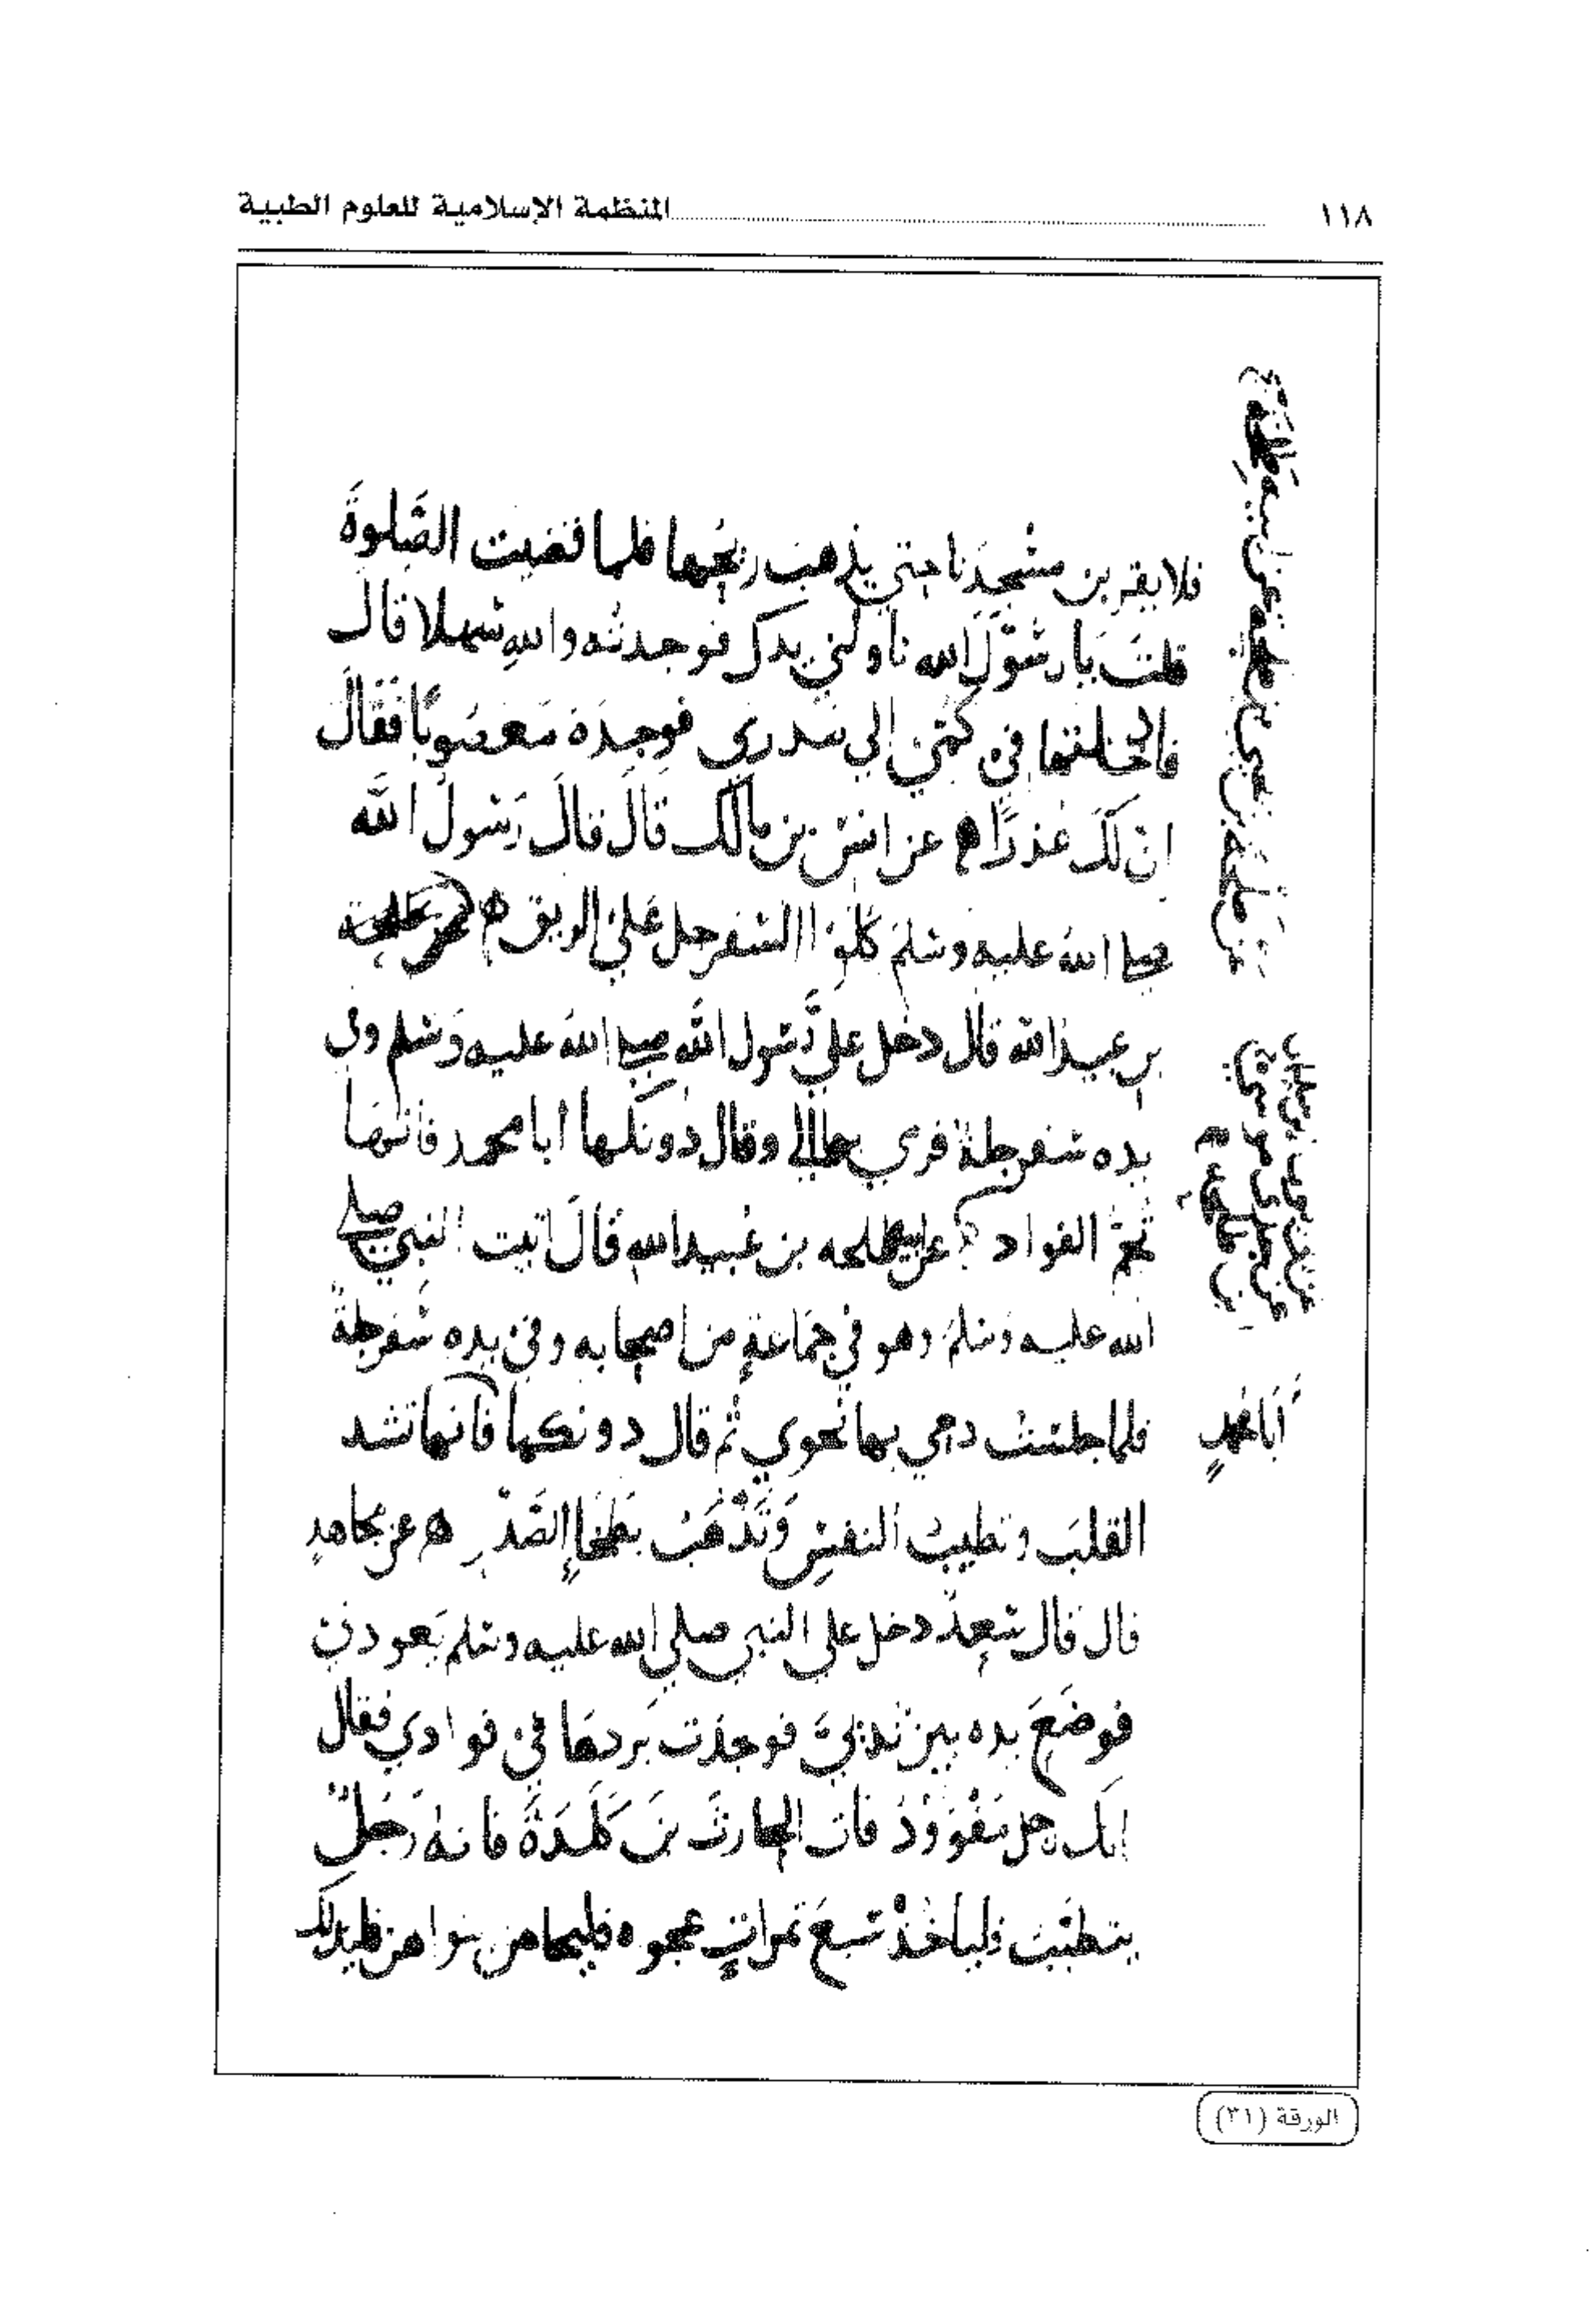 ١١٨ المنظمة الإسلامية للعلوم الطبية
فلا يقربن مسجدنا حتى يذهب ريحها فلما قضيت الصلوة
قلت يا رسول الله ناولني يدك فوجدته والله سهلا قال
فادخلتها في كمي الي صدري فوجده معصوبا فقال
ان لك عذرا ه عن انس بن مالك قال قال رسول الله
صلى الله عليه وسلم كلوا السفرجل على الريق ه عن طلحة
بن عبيد الله قال دخل علي رسول الله صلى الله عليه وسلم وفي
يده سفرجلة فرمي بها الي وقال دونكها ابا محمد فانها
تجم الفواد ه عن ابيه طلحه بن عبيد الله قال اتيت النبي صلى
الله عليه وسلم وهو في جماعة من اصحابه وفي يده سفرجلة
فلما جلست دحي بها نحوي ثم قال دونكها فانها تشد
أبا محمد
القلب وتطيب النفس وتذهب بطخا الصدر ه عن مجاهد
قال قال سعد دخل على النبي صلي الله عليه وسلم يعودني
فوضع يده بين ثديي فوجدت بردها في فوادي فقال
انك رجل مفوود فات الحارث بن كلدة فانه رجل
يتطبب فلياخذ سبع تمرات عجوه فليجاهن بنواهن فليدلك
الورقة (٣١)